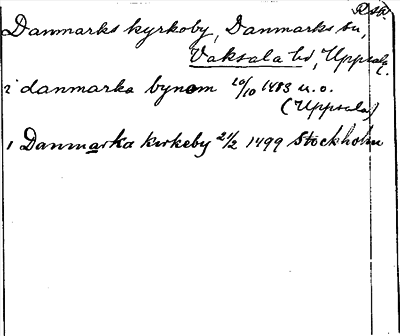 Danmarks kyrkoby, Danmarks sn,
Vaksala hd, Uppsala.
i danmarka bynom 20/10 1483 u. o.
(Uppsala)
i Danmarka kirkeby 21/2 1499 Stockholm